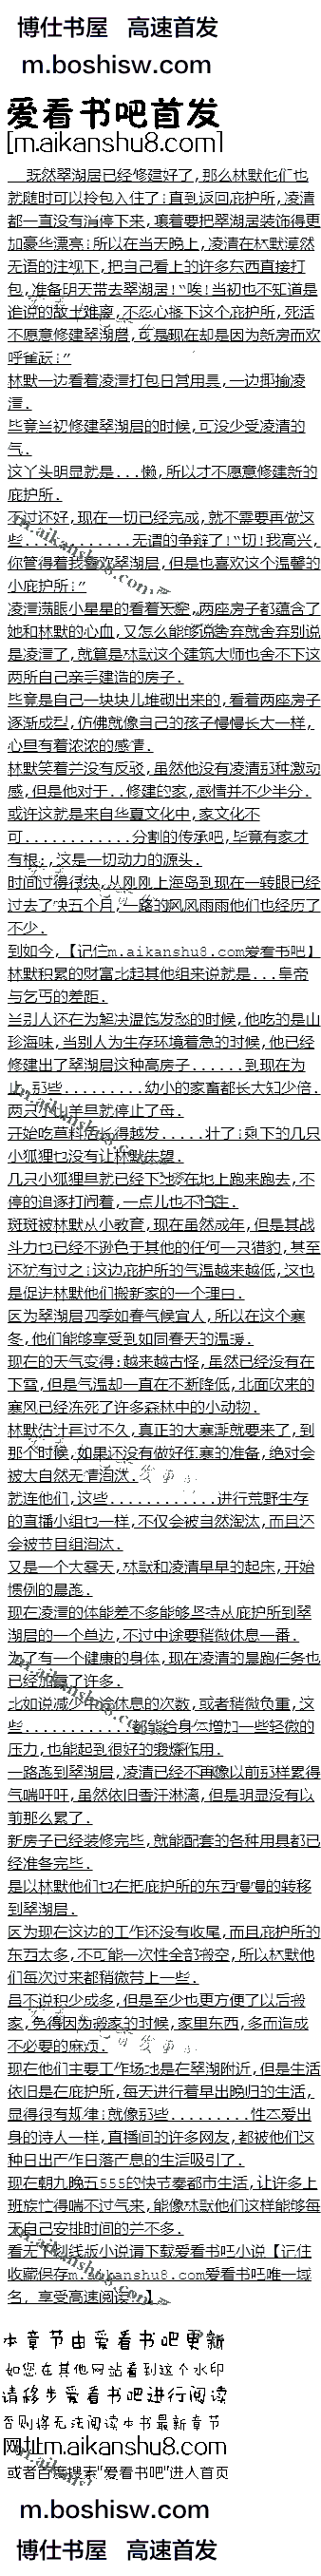 博仕书屋 高速首发
m.boshisw.com
爱看书吧首发
[m.aikanshu8.com]
既然翠湖居已经修建好了,那么林默他们也
就随时可以拎包入住了!直到返回庇护所,凌清
都一直没有消停下来,嚷着要把翠湖居装饰得更
加豪华漂亮!所以在当天晚上,凌清在林默漠然
无语的注视下,把自己看上的许多东西直接打
包,准备明天带去翠湖居!"唉!当初也不知道是
谁说的故土难离,不忍心搁下这个庇护所,死活
不愿意修建翠湖居,可是现在却是因为新房而欢
呼雀跃!"
林默一边看着凌清打包日常用具,一边揶揄凌
清.
毕竟当初修建翠湖居的时候,可没少受凌清的
气.
这丫头明显就是...懒,所以才不愿意修建新的
庇护所.
不过还好,现在一切已经完成,就不需要再做这
些............无谓的争辩了!"切!我高兴,
你管得着我喜欢翠湖居,但是也喜欢这个温馨的
小庇护所!"
凌清满眼小星星的看着天空,两座房子都蕴含了
她和林默的心血,又怎么能够说舍弃就舍弃别说
是凌清了,就算是林默这个建筑大师也舍不下这
两所自己亲手建造的房子.
毕竟是自己一块块儿堆砌出来的,看着两座房子
逐渐成型,仿佛就像自己的孩子慢慢长大一样,
心里有着浓浓的感情.
林默笑着并没有反驳,虽然他没有凌清那种激动
感,但是他对于..修建的家,感情并不少半分.
或许这就是来自华夏文化中,家文化不
可............分割的传承吧,毕竟有家才
有根:,这是一切动力的源头.
时间过得很快,从刚刚上海岛到现在一转眼已经
过去了快五个月,一路的风风雨雨他们也经历了
不少.
到如今,【记住m.aikanshu8.com爱看书吧】
林默积累的财富比起其他组来说就是...皇帝
与乞丐的差距.
当别人还在为解决温饱发愁的时候,他吃的是山
珍海味,当别人为生存环境着急的时候,他已经
修建出了翠湖居这种高房子......到现在为
止,那些.........幼小的家畜都长大知少倍.
两只小山羊早就停止了母.
开始吃草料活长得越发.....壮了!剩下的几只
小狐狸也没有让林默失望.
几只小狐狸早就已经下地,在地上跑来跑去,不
停的追逐打闹着,一点儿也不怕生.
斑斑被林默从小教育,现在虽然成年,但是其战
斗力也已经不逊色于其他的任何一只猎豹,甚至
还犹有过之!这边庇护所的气温越来越低,这也
是促进林默他们搬新家的一个理由.
因为翠湖居四季如春气候宜人,所以在这个寒
冬,他们能够享受到如同春天的温暖.
现在的天气变得!越来越古怪,虽然已经没有在
下雪,但是气温却一直在不断降低,北面吹来的
寒风已经冻死了许多森林中的小动物.
林默估计再过不久,真正的大寒潮就要来了,到
那个时候,如果还没有做好御寒的准备,绝对会
被大自然无情淘汰.
就连他们,这些............进行荒野生存
的直播小组也一样,不仅会被自然淘汰,而且还
会被节目组淘汰.
又是一个大寒天,林默和凌清早早的起床,开始
惯例的晨跑.
现在凌清的体能差不多能够坚持从庇护所到翠
湖居的一个单边,不过中途要稍微休息一番.
为了有一个健康的身体,现在凌清的晨跑任务也
已经加重了许多.
比如说减少中途休息的次数,或者稍微负重,这
些............都能给身体增加一些轻微的
压力,也能起到很好的锻炼作用.
一路跑到翠湖居,凌清已经不再像以前那样累得
气喘吁吁,虽然依旧香汗淋漓,但是明显没有以
前那么累了.
新房子已经装修完毕,就能配套的各种用具都已
经准备完毕.
是以林默他们也在把庇护所的东西慢慢的转移
到翠湖居.
因为现在这边的工作还没有收尾,而且庇护所的
东西太多,不可能一次性全部搬空,所以林默他
们每次过来都稍微带上一些.
虽不说积少成多,但是至少也更方便了以后搬
家,免得因为搬家的时候,家里东西,多而造成
不必要的麻烦.
现在他们主要工作场地是在翠湖附近,但是生活
依旧是在庇护所,每天进行着早出晚归的生活,
显得很有规律!就像那些.........性本爱出
身的诗人一样,直播间的许多网友,都被他们这
种日出而作日落而息的生活吸引了.
现在朝九晚五555的快节奏都市生活,让许多上
班族忙得喘不过气来,能像林默他们这样能够每
天自己安排时间的并不多.
看无下划线版小说请下载爱看书吧小说【记住
收藏保存m.aikanshu8.com爱看书吧唯一域
名, 享受高速阅读 】.
本章节由爱看书吧更新
如您在其他网站看到这个水印
请移步爱看书吧进行阅读
否则将无法阅读本书最新章节
网址m.aikanshu8.com
或者百度搜索"爱看书吧"进入首页
m.boshisw.com
博仕书屋 高速首发